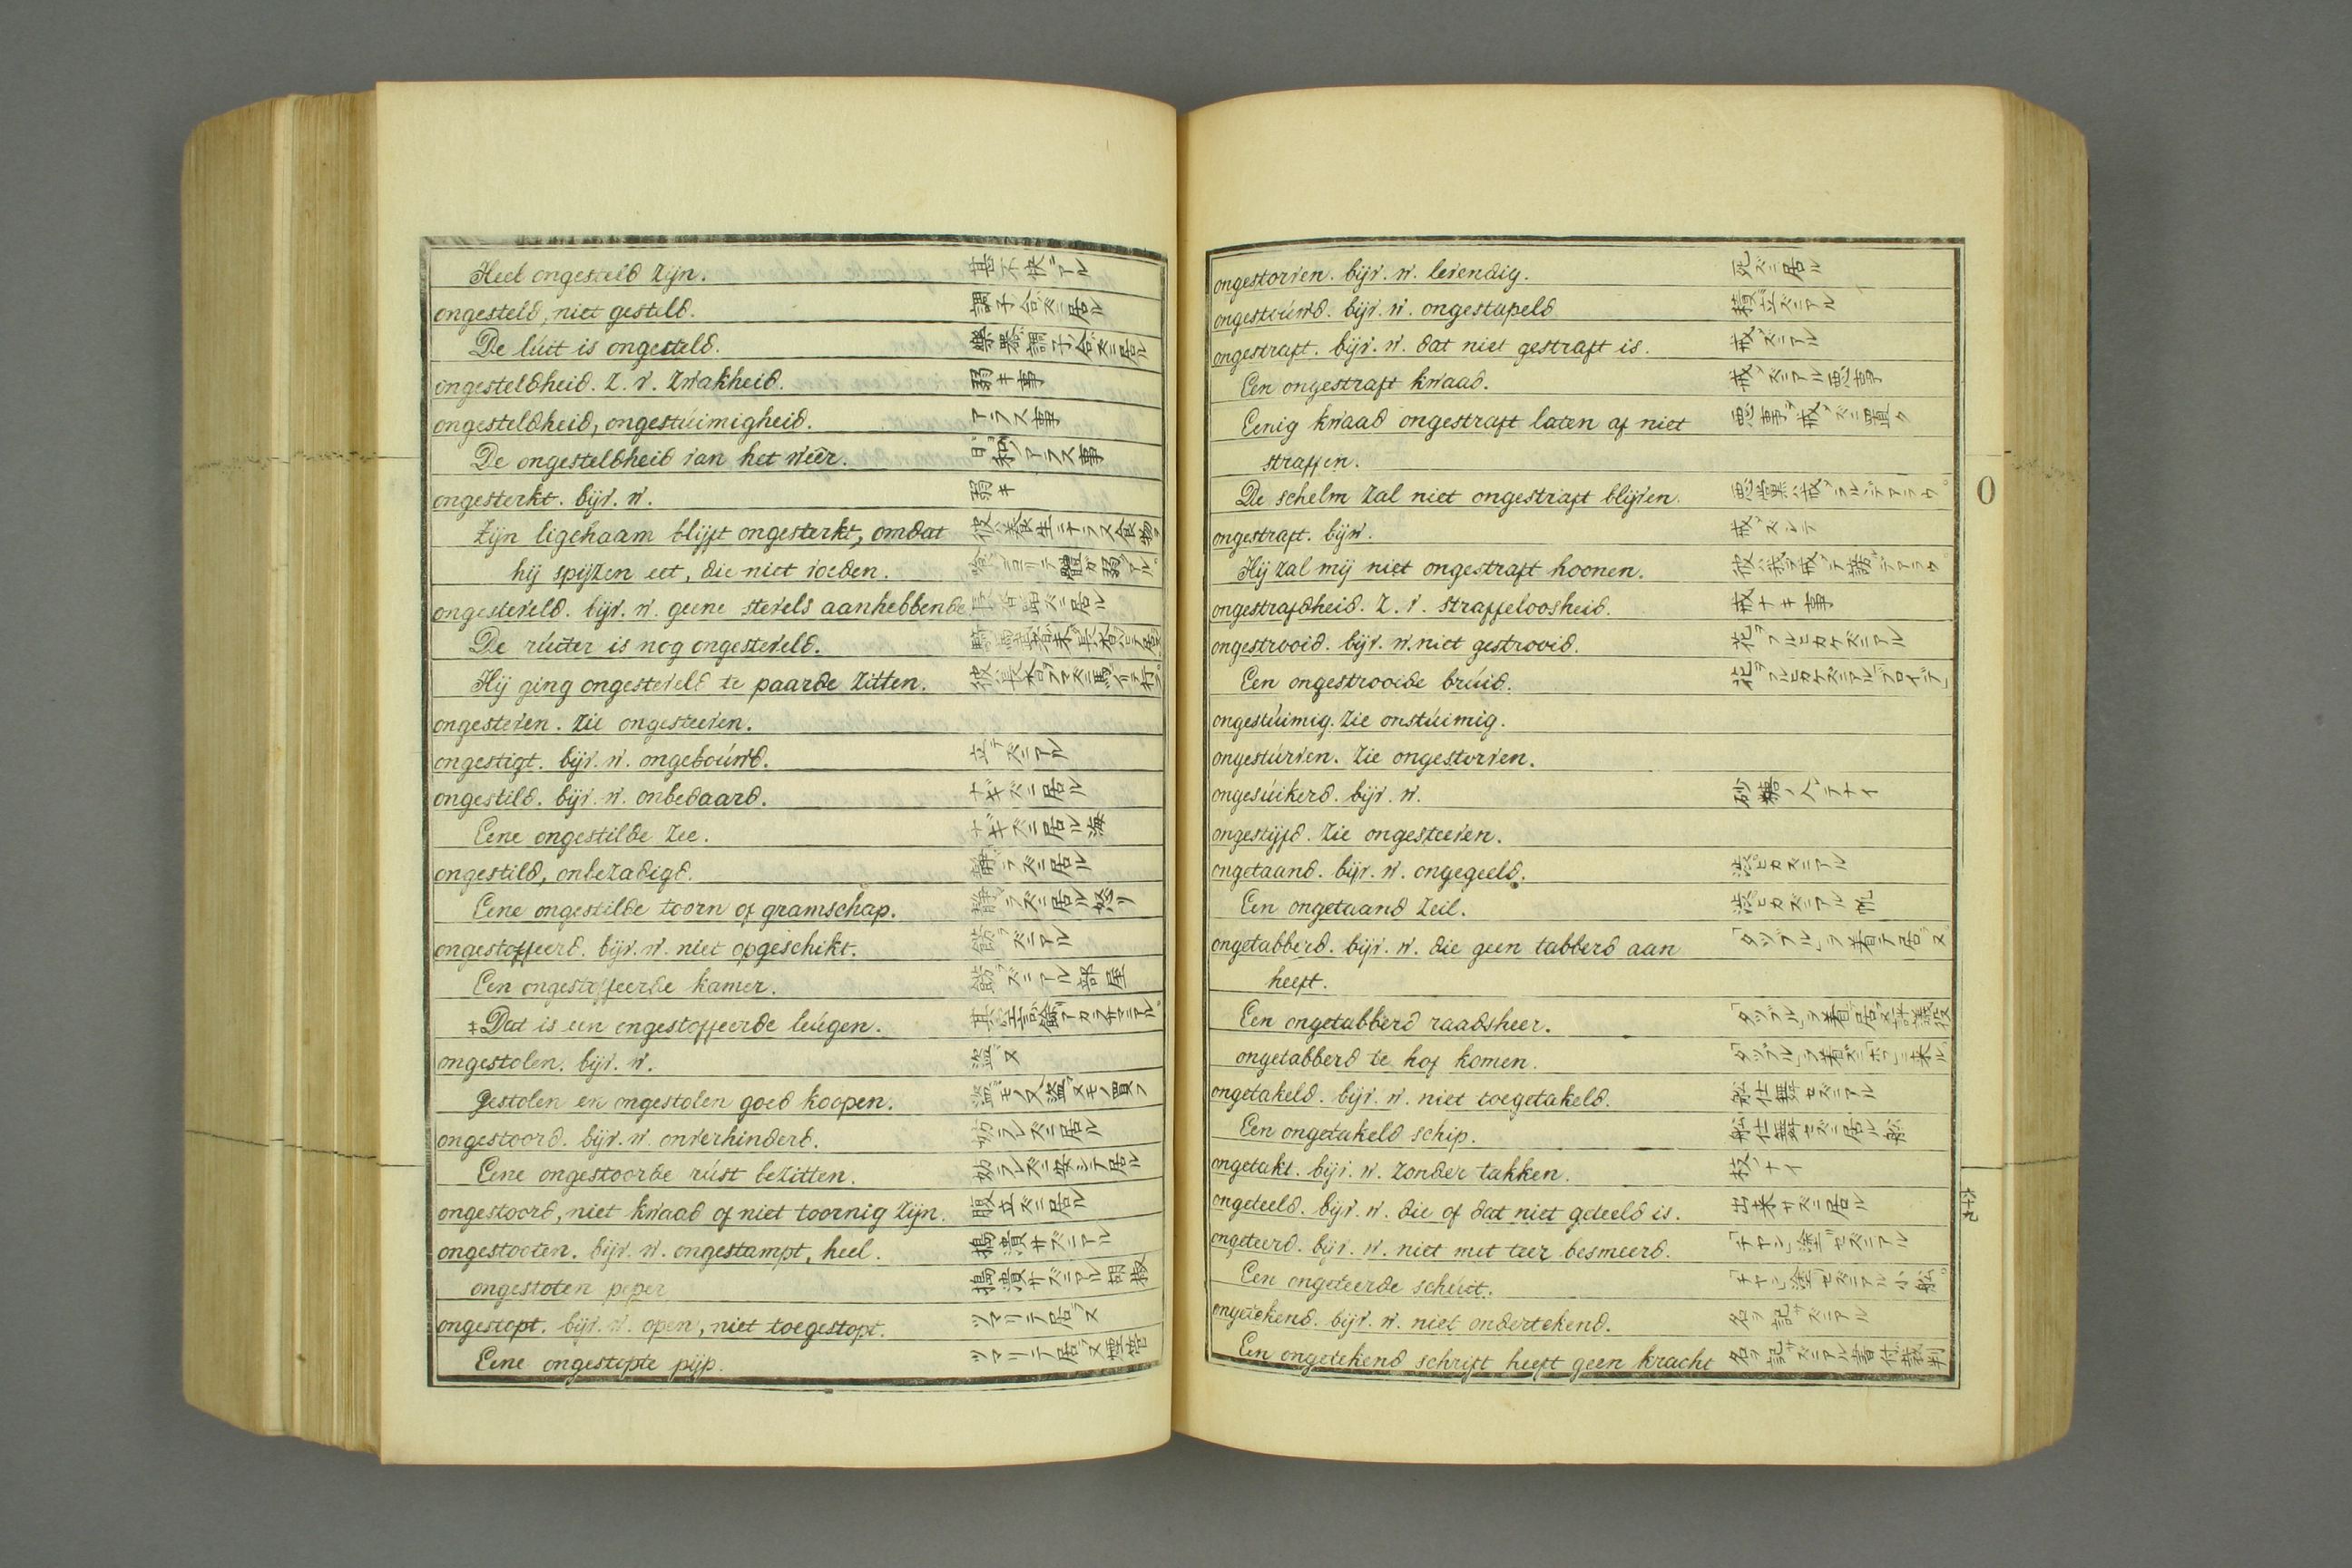 Heel ongesteld zijn. 甚不快デアル
ongesteld, niet gesteld. 調子合ズニ居ル
De lúit is ongesteld. 樂器調子合ズニ居ル
ongesteldheid. z. v. zwakheid. 弱キ事
ongesteldheid, ongestúimigheid. アラス事
De ongesteldheid van het wêer. 日和ノアラス事
ongesterkt. bijv. w. 弱キ
Zijn ligchaam blijft ongesterkt, omdat
hij spijzen eet, die niet voeden.
ongesteveld. bijv. w. geene stevels aanhebbende
De rúiter is nog ongesteveld.
Hij ging ongesteveld te paarde zitten.
ongesteven. Zie ongesteeven.
ongestigt. bijv. w. ongeboúwd. 立テズニアル
ongestild. bijv. w. onbedaard. ナギズニ居ル
Eene ongestilde zee. ナギズニ居ル海
ongestild, onbezadigd. 靜ラズニ居ル
Eene ongestilde toorn of gramschap. 靜ラズニ居ル怒リ
ongestoffeerd. bijv. w. niet opgeschikt. 餝ズニアル
Een ongestoffeerde kamer. 餝ズニアル部屋
‡Dat is een ongestoffeerde leúgen.
ongestolen. bijv. w. 盗ヌ
gestolen en ongestolen goed koopen.
ongestoord. bijv. w. onverhinderd. 妨ラレズニ居ル
Eene ongestoorde rúst bezitten. 妨ラレズニ安シテ居ル
ongestoord, niet kwaad of niet toornig zijn. 腹立ズニ居ル
ongestooten. bijv. w. ongestampt, heel. 搗潰サズニアル
ongestoten peper 搗潰サズニアル胡椒
ongestopt. bijv. w. open, niet toegestopt. ツマリテ居ヌ
Eene ongestopte pijp. ツマリテ居ヌ煙管
ongestorven. bijv. w. levendig. 死ズニ居ル
ongestoúwd. bijv. w. ongestapeld 積立ズニアル
ongestraft. bijv. w. dat niet gestraft is. 戒ズニアル
Een ongestraft kwaad. 戒ズニアル悪事
Eenig kwaad ongestraft laten of niet 悪事ヲ戒ズニ置ク
straffen.
De schelm zal niet ongestraft blijven.
ongestraft. bijw. 戒ズシテ
Hij zal mij niet ongestraft hoonen.
ongestrafdheid. z. v. straffeloosheid. 戒ナキ事
ongestrooid. bijv. w. niet gestrooid. 花ヲフルヒカケズニアル
Een ongestrooide brúid.
ongestúimig. Zie onstúimig.
ongestúrven. Zie ongestorven.
ongesúikerd. bijv. w. 砂糖ノ入ラナイ
ongestijfd. Zie ongesteeven.
ongetaand. bijv. w. ongegeeld. 渋ヒカズニアル
Een ongetaand zeil. 渋ヒカズニアル帆
ongetabberd. bijv. w. die geen tabberd aan 「タッブル」ヲ着テ居ヌ
heeft.
Een ongetabberd raadsheer.
ongetabberd te hof komen.
ongetakeld. bijv. w. niet toegetakeld. 舩仕舞セズニアル
Een ongetakeld schip. 舩仕舞セズニ居ル舩
ongetakt. bijv. w. zonder takken. 枝ノナイ
ongeteeld. bijv. w. die of dat niet geteeld is. 出来サズニ居ル
ongeteerd. bijv. w. niet met teer besmeerd. 「チヤン」塗セズニアル
Een ongeteerde schúit. 「チヤン」塗セズニアル小舩。
ongetekend. bijv. w. niet ondertekend. 名ヲ記サズニアル
Een ongetekend schrift heeft geen kracht 名ヲ記サズニアル書付裁判
O